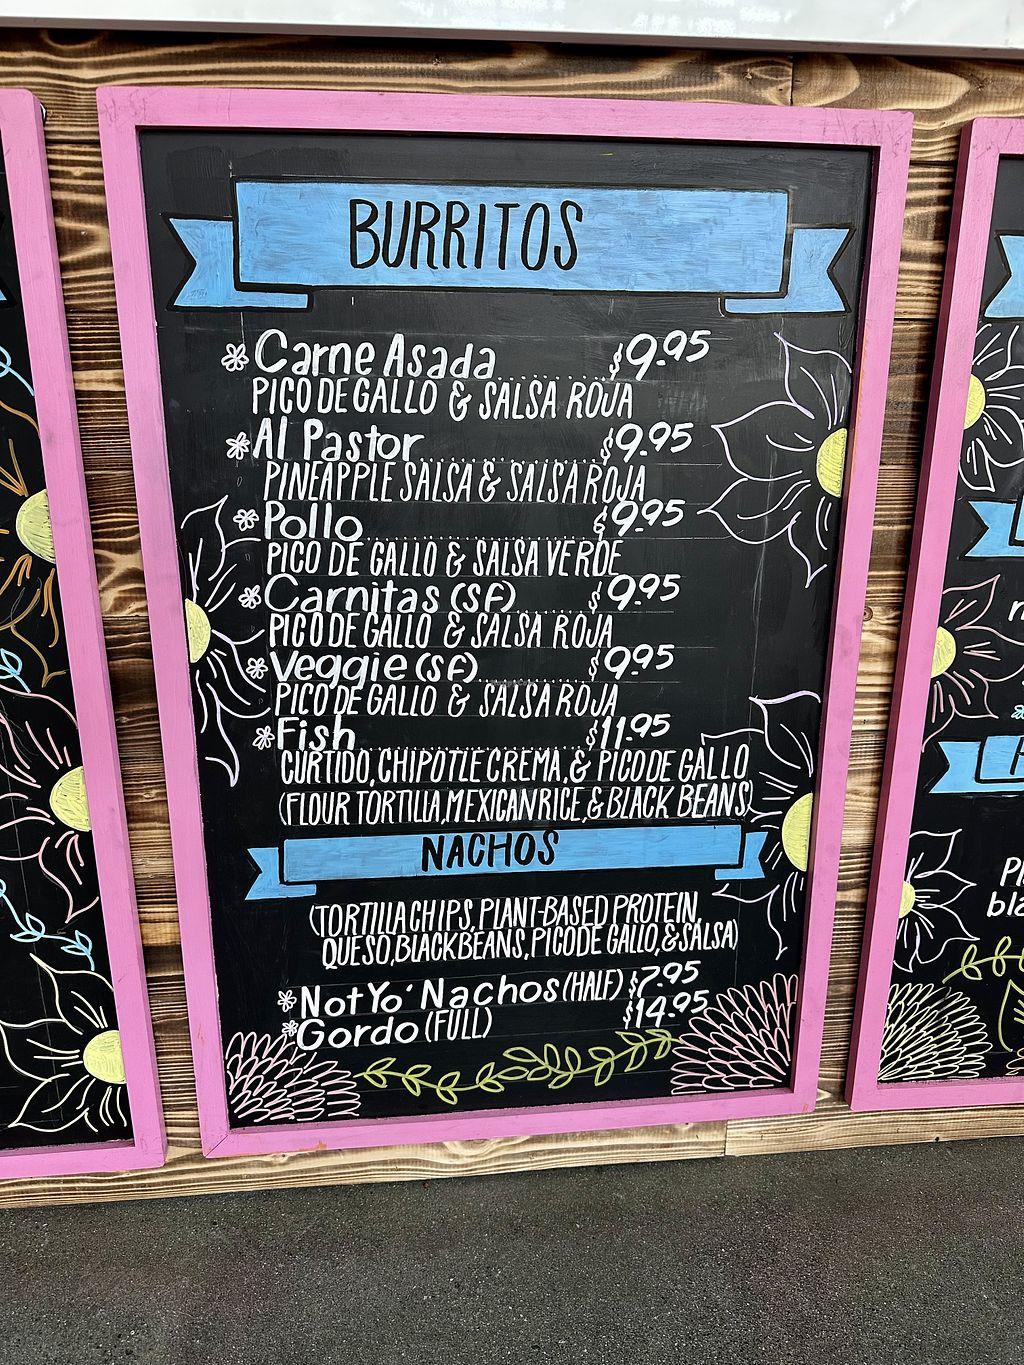 BURRITOS
Carne Asada $9.95
PICO DE GALLO & SALSA ROJA
Al Pastor $9.95
PINEAPPLE SALSA & SALSA ROJA
Pollo $9.95
PICO DE GALLO & SALSA VERDE
Carnitas (SF) $9.95
PICO DE GALLO & SALSA ROJA
Veggie (SF) $9.95
PICO DE GALLO & SALSA ROJA
Fish $11.95
CURTIDO, CHIPOTLE CREMA, & PICO DE GALLO
(FLOUR TORTILLA, MEXICAN RICE, & BLACK BEANS)
NACHOS
(TORTILLA CHIPS, PLANT-BASED PROTEIN,
QUESO, BLACK BEANS, PICO DE GALLO, & SALSA)
Not Yo' Nachos (HALF) $7.95
Gordo (FULL) $14.95